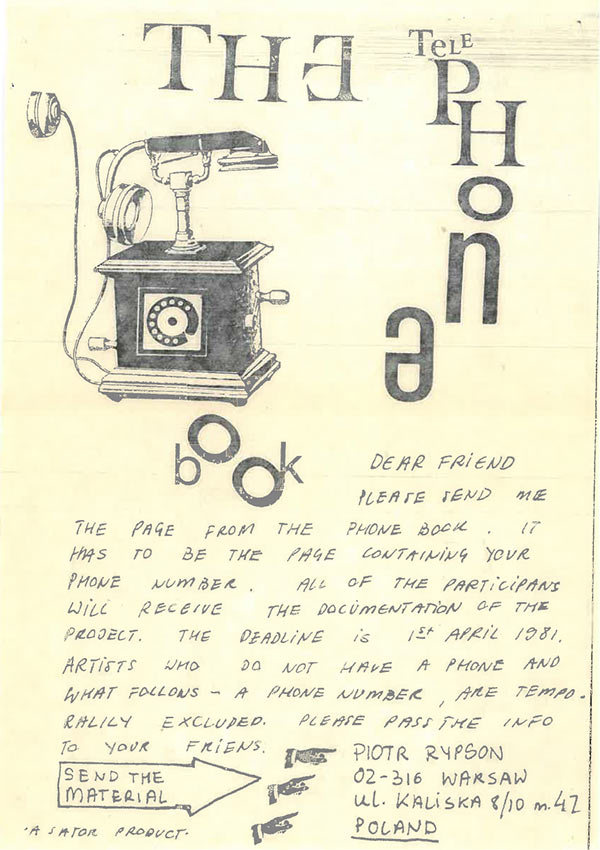 THE
TeLE
PHonə
book
DEAR FRIEND
PLEASE SEND ME
THE PAGE FROM THE PHONE BOOK. IT
HAS TO BE THE PAGE CONTAINING YOUR
PHONE NUMBER. ALL OF THE PARTICIPANS
WILL RECEIVE THE DOCUMENTATION OF THE
PROJECT. THE DEADLINE is 1st APRIL 1981.
ARTISTS WHO DO NOT HAVE A PHONE AND
WHAT FOLLOWS - A PHONE NUMBER, ARE TEMPO-
RALILY EXCLUDED. PLEASE PASS THE INFO
TO YOUR FRIENS.
SEND THE
MATERIAL
PIOTR RYPSON
02-316 WARSAW
ul. KALISKA 8/10 m. 47
POLAND
·A SATOR PRODUCT·